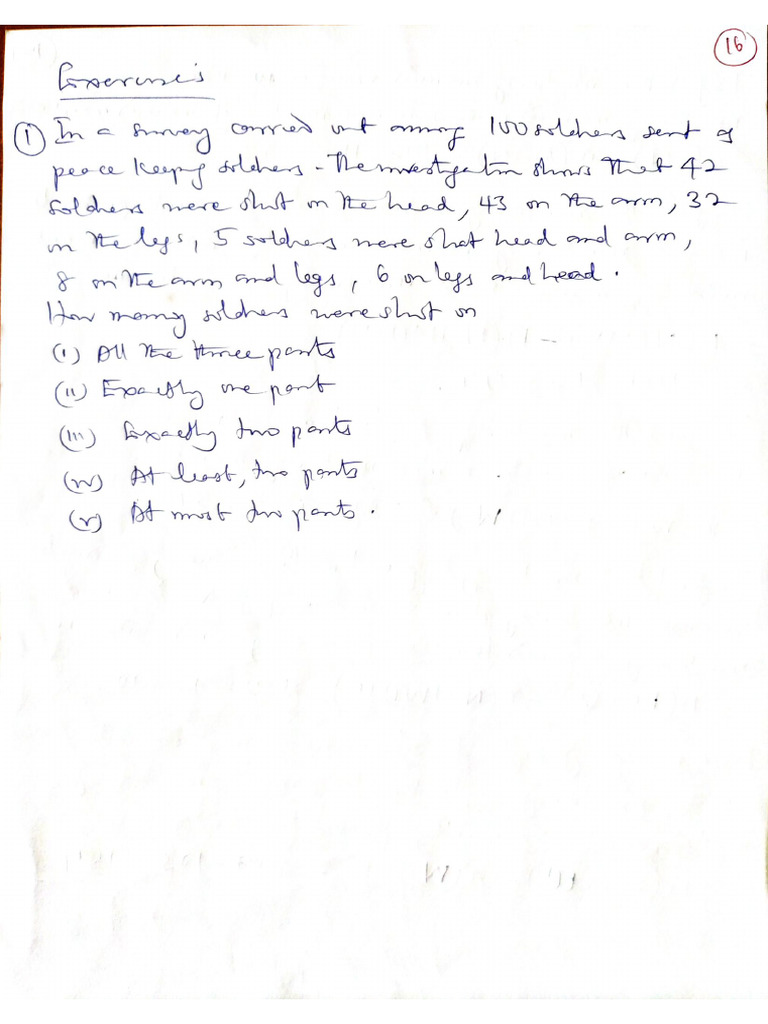 16
Exercises
① In a survey carried out among 100 soldiers sent as
peace keeping soldiers - The investigation shows that 42
soldiers were shot on the head, 43 on the arm, 32
on the legs, 5 soldiers were shot head and arm,
8 on the arm and legs, 6 on legs and head.
How many soldiers were shot on
(i) All the three parts
(ii) Exactly one part
(iii) Exactly two parts
(iv) At least, two parts
(v) At most two parts.